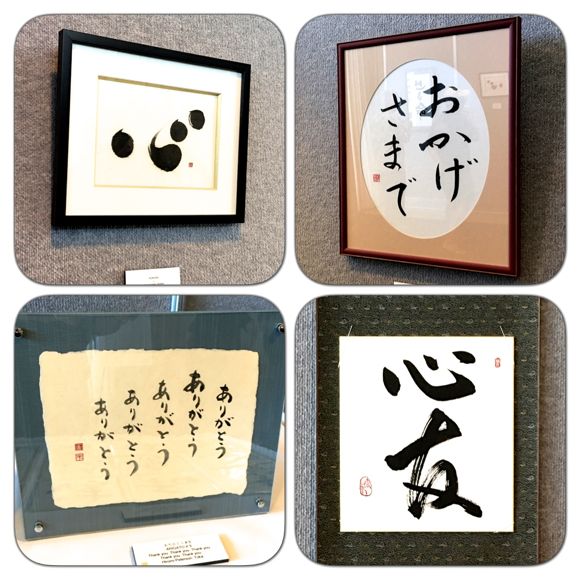 おかげ
さまで
ありがとう
ありがとう
ありがとう
ありがとう
ありがとう
Thank you Thank you Thank you
Thank you Thank you
Hiromi Peterson
心友